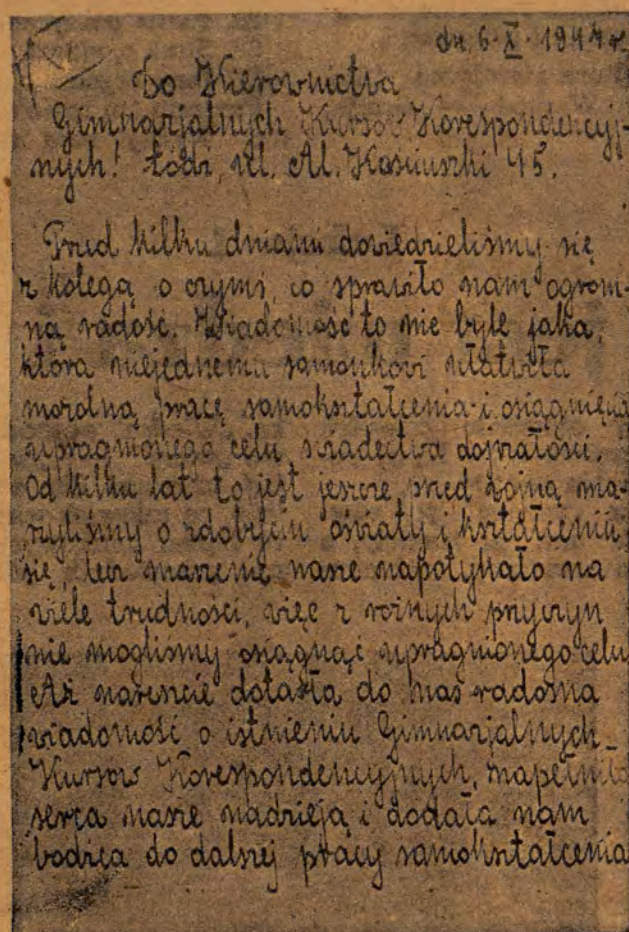 dn. 6. X. 1947 r.
Do Kierownictwa
Gimnazjalnych Kursów Korespondencyj-
nych! Łódź, ul. Al. Kościuszki 45.
Przed kilku dniami dowiedzieliśmy się
z kolegą o czymś, co sprawiło nam ogrom-
ną radość. Wiadomość to nie byle jaka,
która niejednemu samoukowi ułatwiła
morolną pracę samokształcenia i osiągnięcia
upragnionego celu, świadectwa dojrzałości.
Od kilku lat to jest jeszcze przed wojną ma-
rzyliśmy o zdobyciu oświaty i kształceniu
się, lecz marzenie nasze napotykało na
wiele trudności, więc z różnych przyczyn
nie mogliśmy osiągnąć upragnionego celu.
Aż nareszcie dotarła do nas radosna
wiadomość o istnieniu Gimnazjalnych
Kursów Korespondencyjnych, napełniła
serca nasze nadzieją i dodała nam
bodźca do dalszej pracy samokształcenia